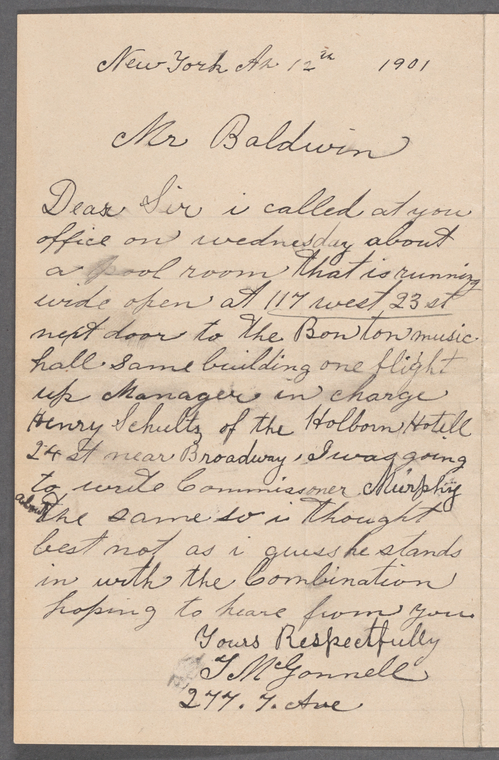 New York Ap 12th 1901
Mr Baldwin
Dear Sir i called at you
office on wednesday about
a pool room that is running
wide open at 117 west 23 st
next door to the Bon ton music
hall same building one flight
up Manager in charge
Henry Schultz of the Holborn Hotell
24 st near Broadway, I was going
to write Commissoner Murphy
about the same so i thought
best not as i guess he stands
in with the Combination
hoping to heare from you
Yours Respectfully
J McGonnell
277. 7. Ave